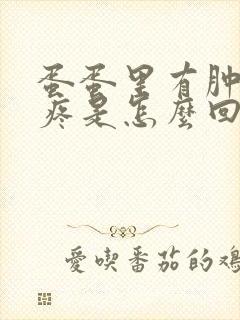 蛋蛋里有肿
疼是怎麼回
愛喫番茄的鳮